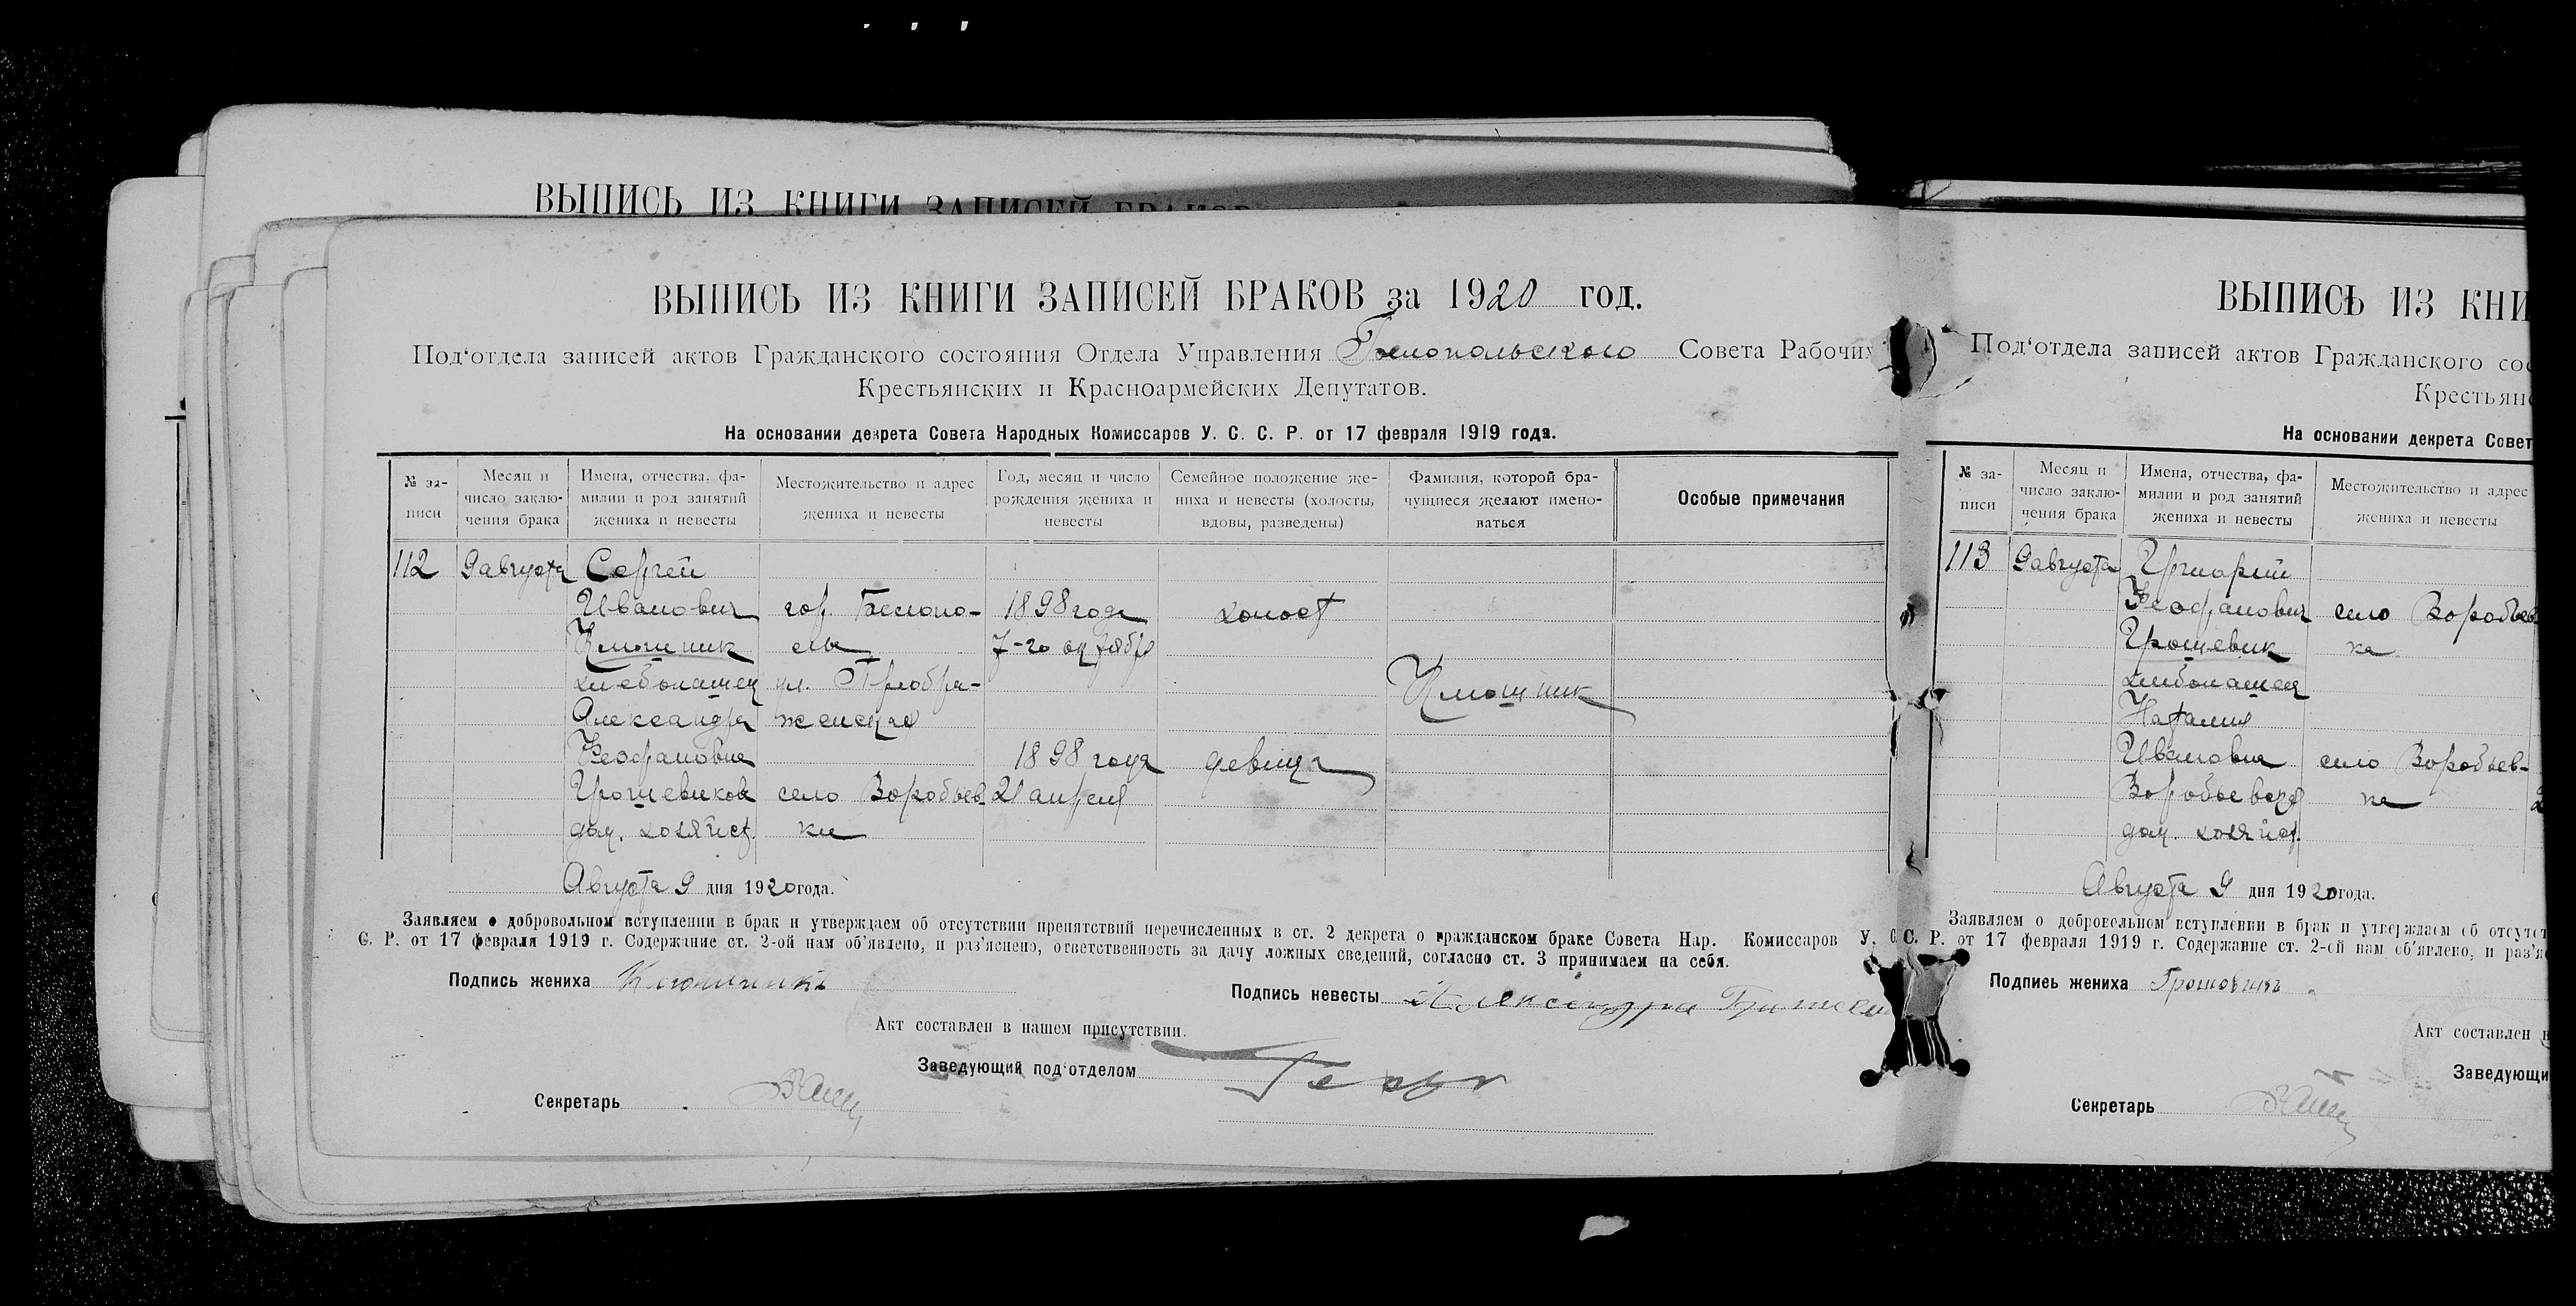 ВЫПИСЬ ИЗ КНИГИ ЗАПИСЕЙ
ВЫПИСЬ ИЗ КНИГИ ЗАПИСЕЙ БРАКОВ за 1920 год.
Под‘отдела записей актов Гражданского состояния Отдела Управления Белопольского Совета Рабочих
Крестьянских и Красноармейских Депутатов.
На основании декрета Совета Народных Комиссаров У. С. С. Р. от 17 февраля 1919 года.
№ за-
писи
Месяц и
число заклю-
чения брака
Имена, отчества, фа-
милии и род занятий
жениха и невесты
Местожительство и адрес
жениха и невесты
Год, месяц и число
рождения жениха и
невесты
Семейное положение же-
ниха и невесты (холосты,
вдовы, разведены)
Фамилия, которой бра-
чущиеся желают имено-
ваться
Особые примечания
112 9 августа Сергей
Иванович гор. Белопо- 1898 года холост
лье 7-го октября
хлебопашец ул. Преобра-
Александра женская
Феофановна 1898 года девица
село Воробьев 21 апреля
дом. хозяйст. ки
Августа 9 дня 1920 года.
Заявляем о добровольном вступлении в брак и утверждаем об отсутствии препятствий перечисленных в ст. 2 декрета о гражданском браке Совета Нар. Комиссаров У. С.
С. Р. от 17 февраля 1919 г. Содержание ст. 2-ой нам об’явлено, и раз’яснено, ответственность за дачу ложных сведений, согласно ст. 3 принимаем на себя.
Подпись жениха
Подпись невесты Александра
Акт составлен в нашем присутствии.
Заведующий под‘отделом
Секретарь
ВЫПИСЬ ИЗ КНИ
Под‘отдела записей актов Гражданского сос
Крестьянс
На основании декрета Совет
№ за-
писи
Месяц и
число заклю-
чения брака
Имена, отчества, фа-
милии и род занятий
жениха и невесты
Местожительство и адрес
жениха и невесты
113 9 августа
Феофанович село Воробьев
Грошевик ка
хлебопашец
Наталия
Ивановна село Воробьев-
ка
дом. хозяйст.
Августа 9 дня 1920 года.
Заявляем о добровольном вступлении в брак и утверждаем об отсутст
С. Р. от 17 февраля 1919 г. Содержание ст. 2-ой нам об’явлено, и раз’я
Подпись жениха
Акт составлен
Заведующи
Секретарь